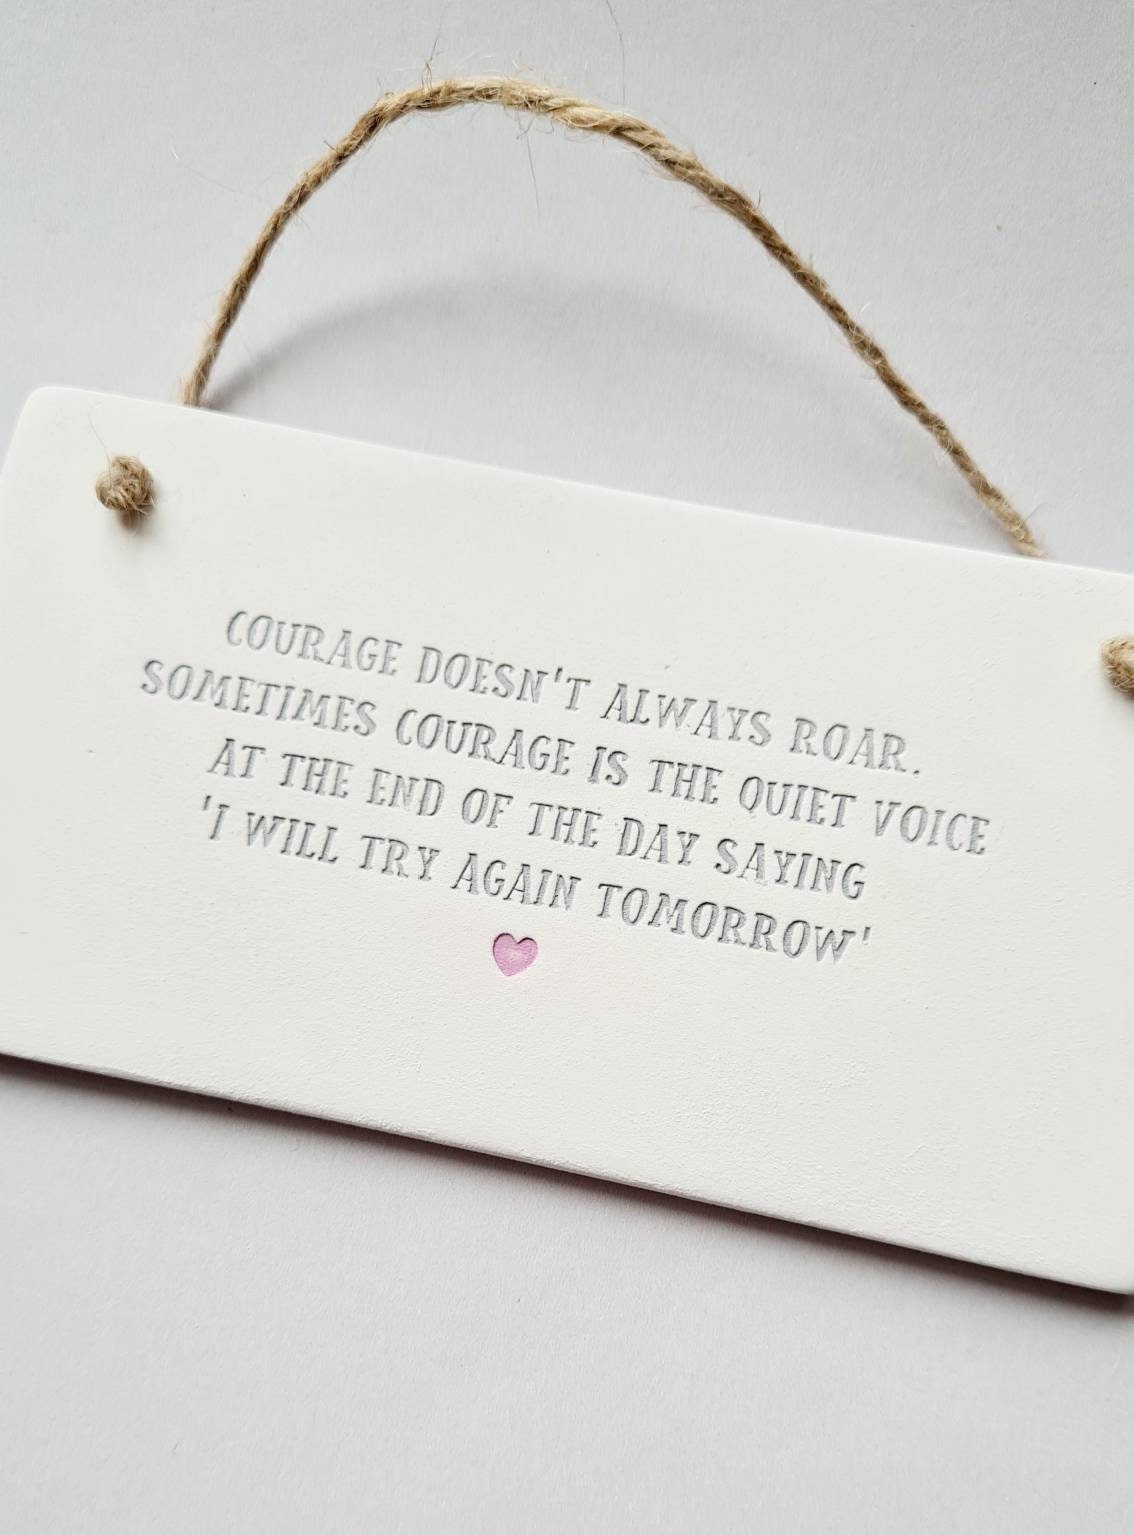 COURAGE DOESN'T ALWAYS ROAR.
SOMETIMES COURAGE IS THE QUIET VOICE
AT THE END OF THE DAY SAYING
'I WILL TRY AGAIN TOMORROW'